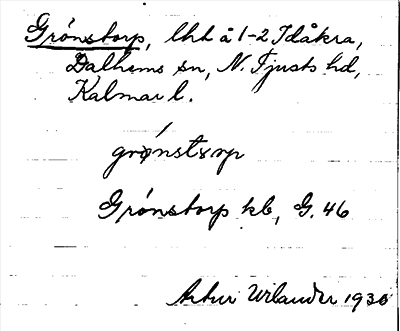 Grönstorp, lht å 1-2 Idåkra,
Dalhems sn, N. Tjusts hd,
Kalmar l.
Grönstorp kb, G. 46
Artur Wilander